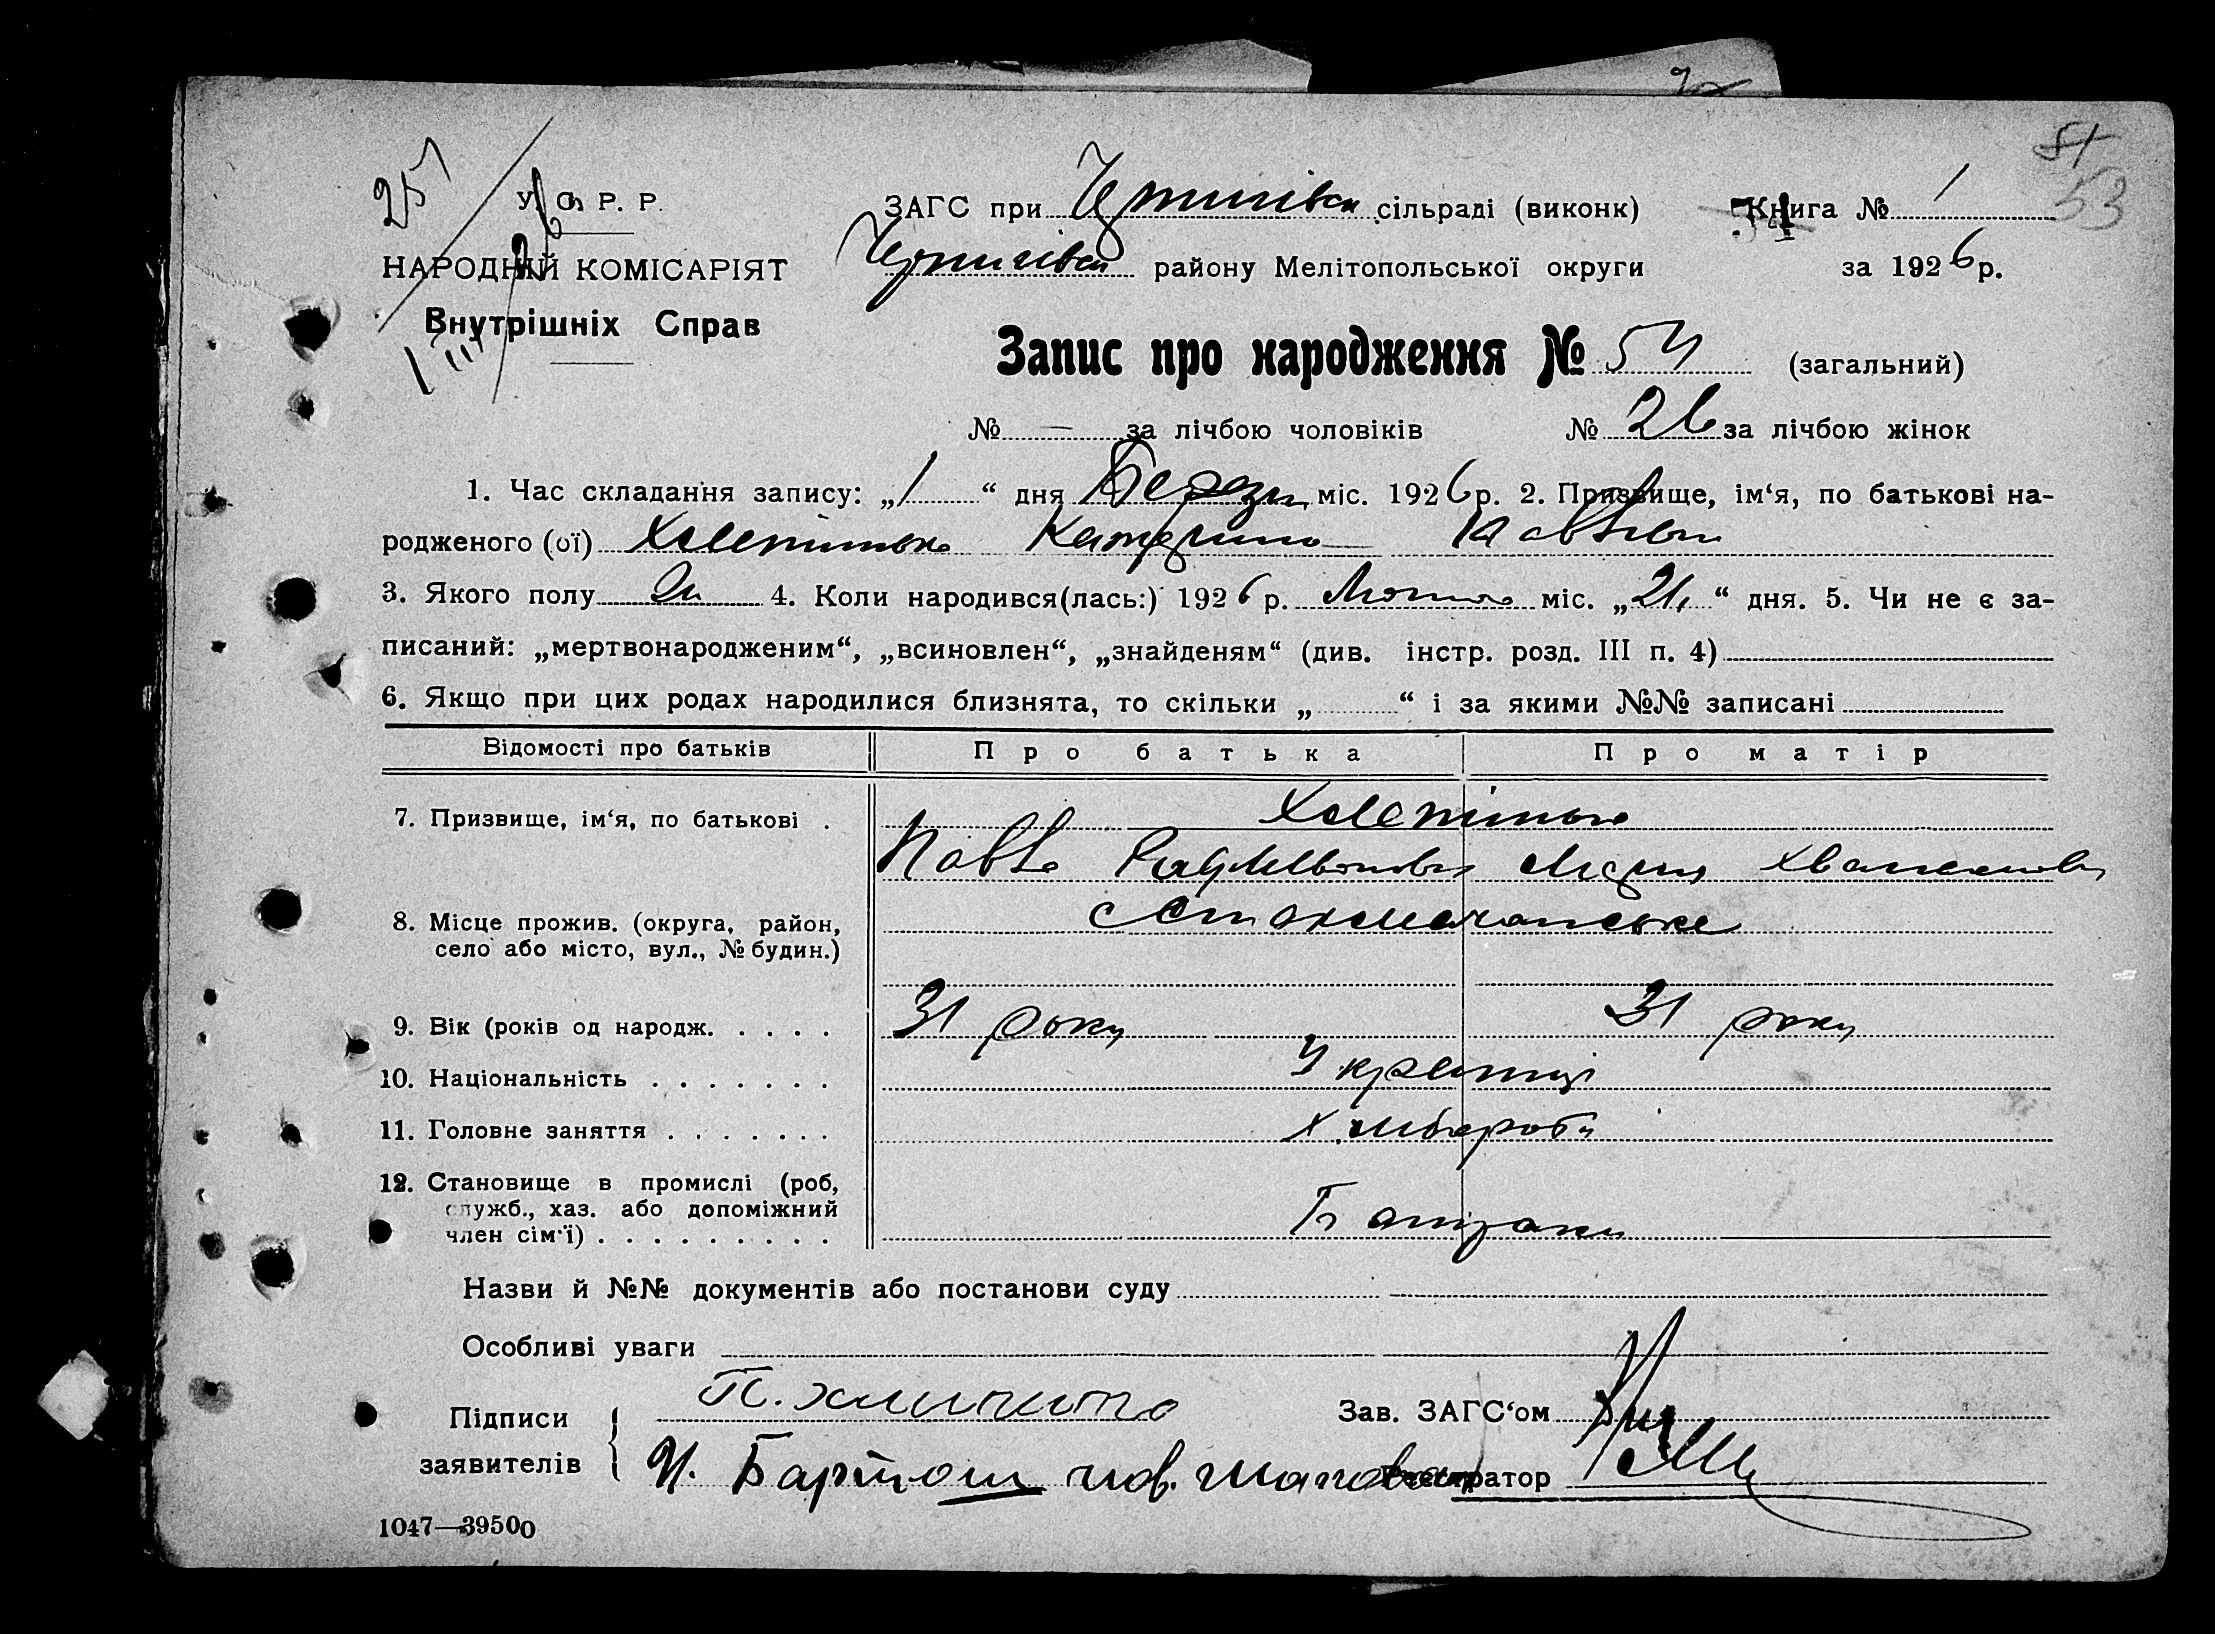 251
У. С. Р. Р.
НАРОДНІЙ КОМІСАРІЯТ
Внутрішніх Справ
ЗАГС при Чернігівськ сільраді (виконк) Книга № 1
53
Чернігівськ району Мелітопольської округи за 1926 р.
Запис про народження № 54 (загальний)
№ — за лічбою чоловіків № 26 за лічбою жінок
1. Час складання запису: „1“ дня Березня міс. 1926 р. 2. Призвище, ім‘я, по батькові на-
родженого (ої) Катерина Павлівна
3. Якого полу 4. Коли народився(лась:) 1926 р. Лютого міс. „21“ дня. 5. Чи не є за-
писаний: „мертвонародженим“, „всиновлен“, „знайденям“ (див. інстр. розд. III п. 4)
6. Якщо при цих родах народилися близнята, то скільки „ “ і за якими №№ записані
Відомості про батьків Про батька Про матір
7. Призвище, ім‘я, по батькові .
Павло Марія
8. Місце прожив. (округа, район,
село або місто, вул., № будин.)
с Стокмачанське
9. Вік (років од народж. . . . . 31 року 31 року
10. Національність . . . . . . . Українці
11. Головне заняття . . . . . . . Хлібороби
12. Становище в промислі (роб,
служб., хаз. або допоміжний
член сім‘ї) . . . . . . . . . Батраки
Назви й №№ документів або постанови суду
Особливі уваги
Підписи
заявителів
П.
Зав. ЗАГС‘ом
И. Бартош
Реєстратор
1047—39500